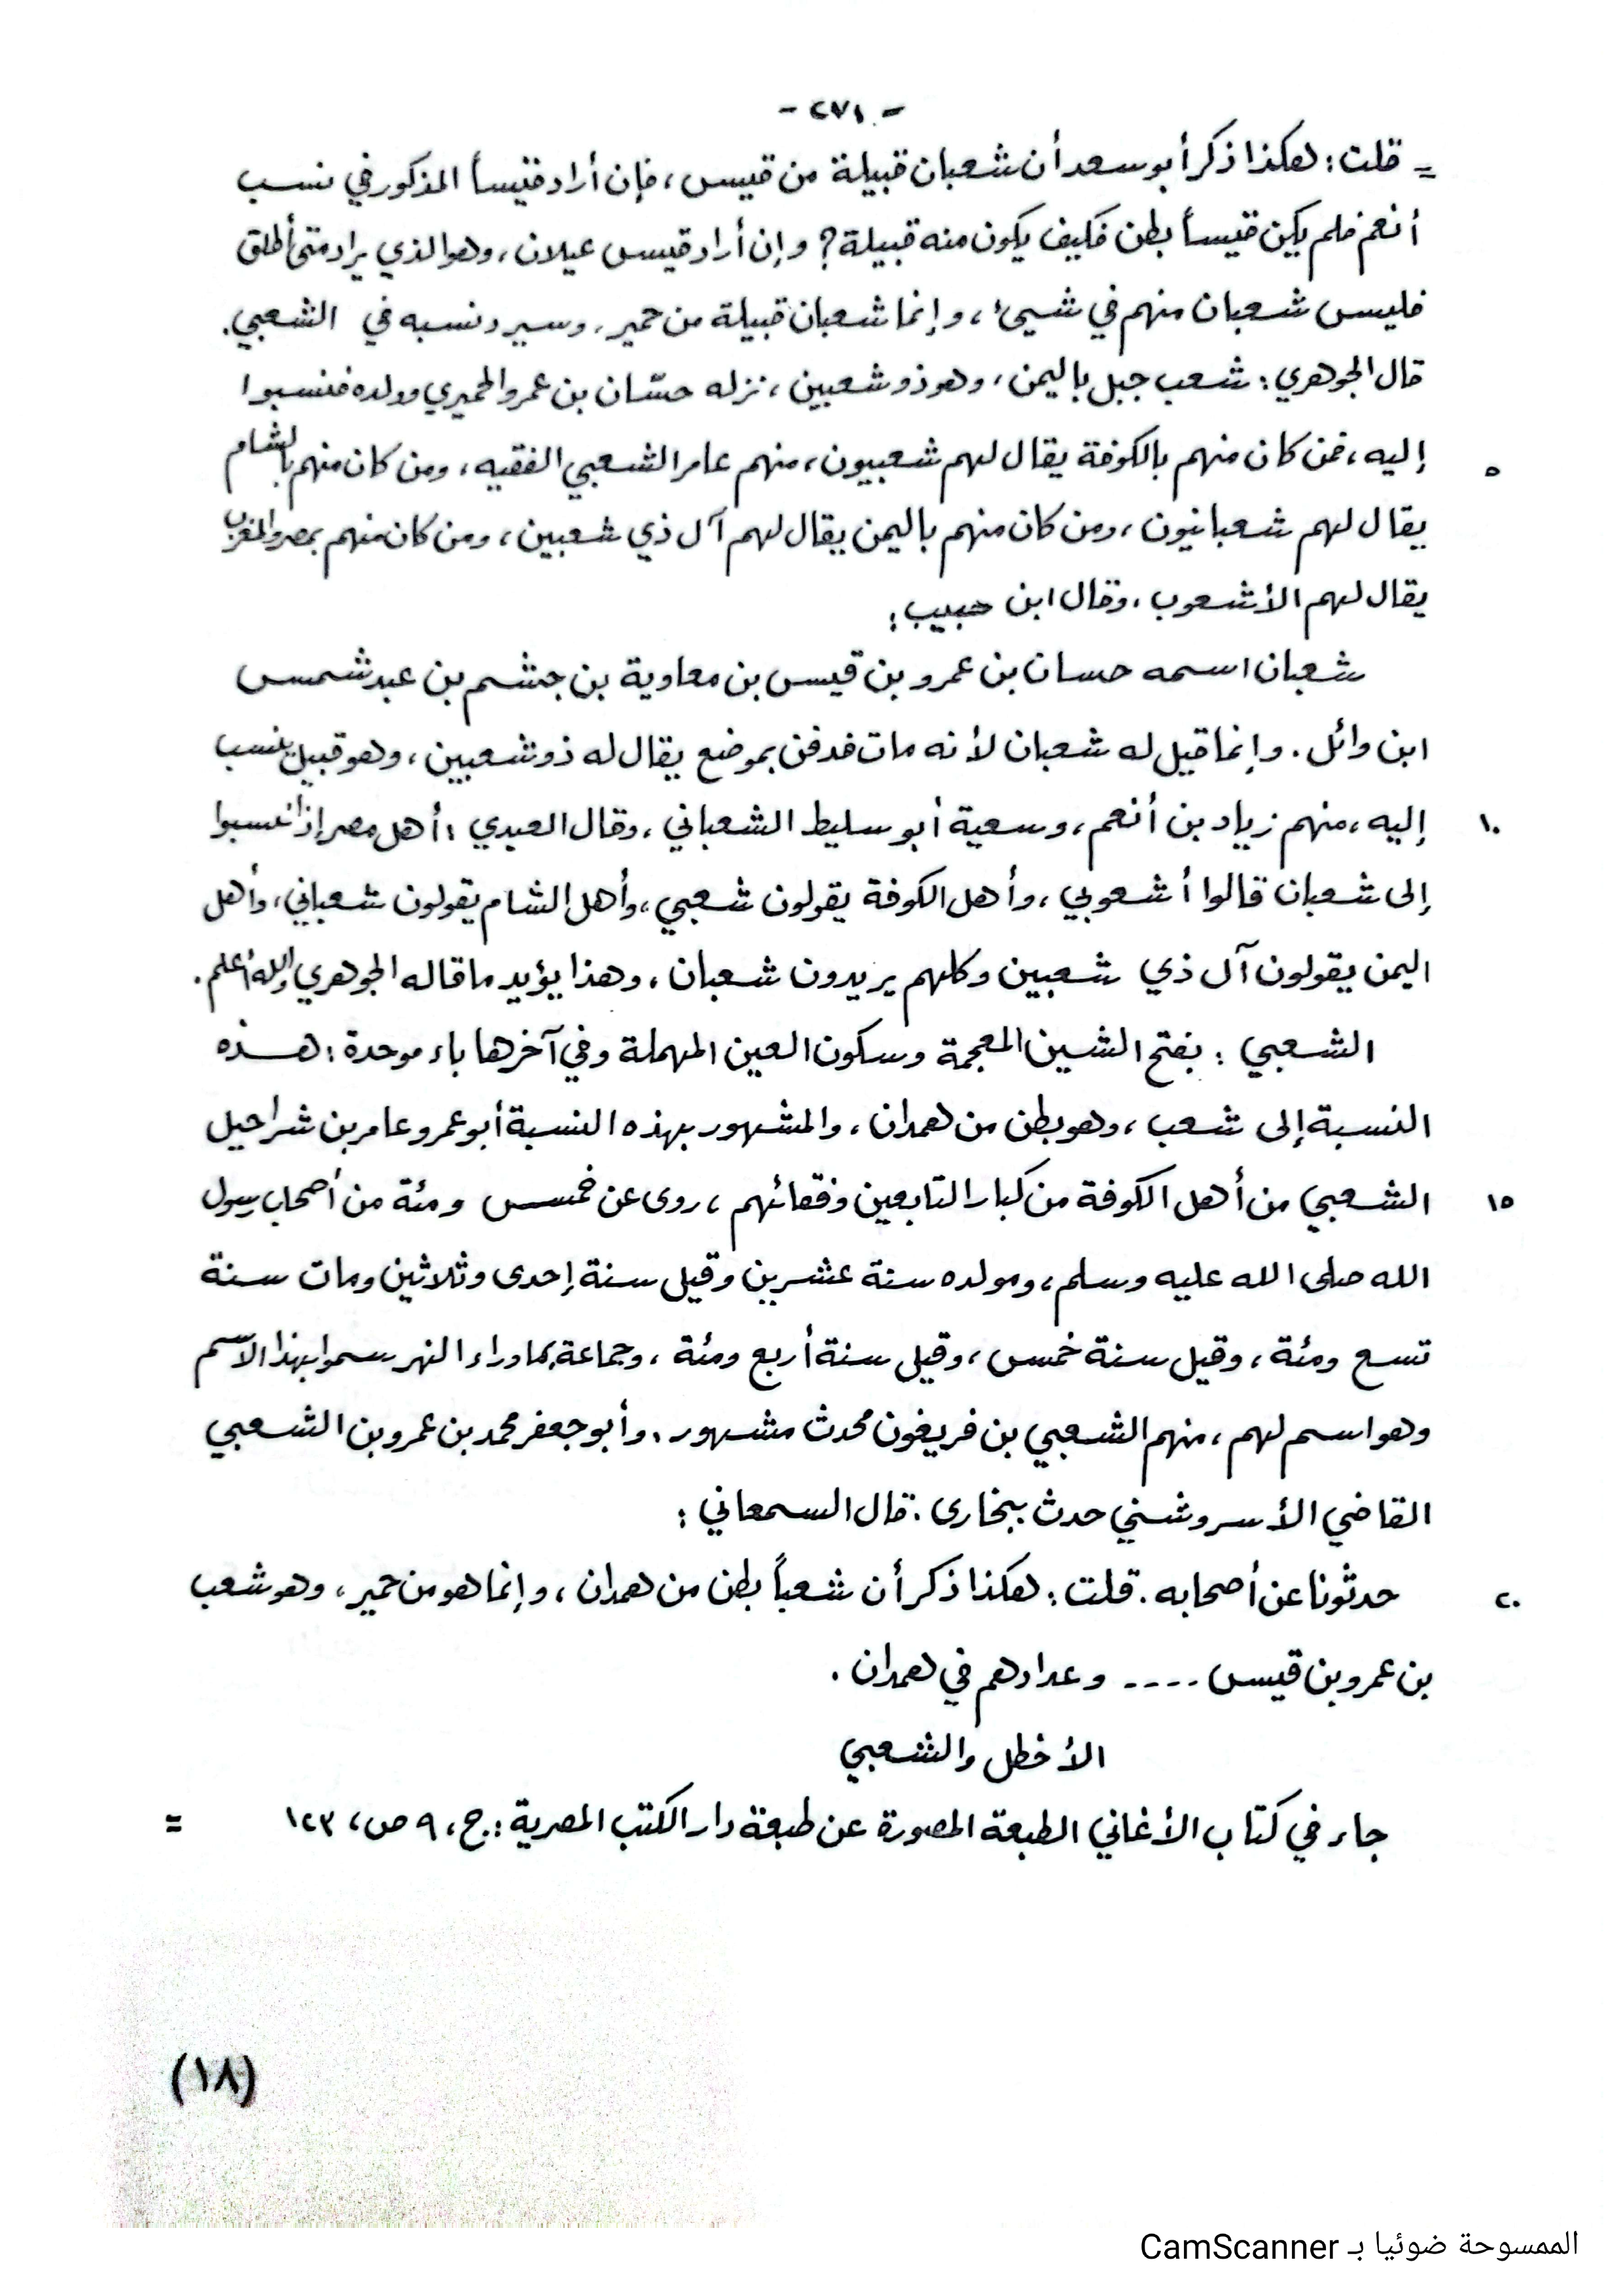 - ٢٧١ -
= قلت: هكذا ذكر أبو سعد أن شعبان قبيلة من قيس، فإن أراد قيساً المذكور في نسب
أنعم فلم يكن قيساً بطن فكيف يكون منه قبيلة؟ وإن أراد قيس عيلان، وهو الذي يراد متى أطلق
فليس شعبان منهم في شيئ، وإنما شعبان قبيلة من حمير، وسيرد نسبه في الشعبي.
قال الجوهري: شعب جبل باليمن، وهو ذو شعبين، نزله حسّان بن عمرو الحميري وولده فنسبوا
٥ إليه، فمن كان منهم بالكوفة يقال لهم شعبيون، منهم عامر الشعبي الفقيه، ومن كان منهم بالشام
يقال لهم شعبانيون، ومن كان منهم باليمن يقال لهم آل ذي شعبين، ومن كان منهم بمصر والمغرب
يقال لهم الأشعوب، وقال ابن حبيب:
شعبان اسمه حسان بن عمرو بن قيس بن معاوية بن جشم بن عبد شمس
ابن وائل. وإنما قيل له شعبان لأنه مات فدفن بموضع يقال له ذو شعبين، وهو قبيل ينسب
١٠ إليه، منهم زياد بن أنعم، وسعية أبو سليط الشعباني، وقال العبدي: أهل مصر إذا نسبوا
إلى شعبان قالوا أشعوبي، وأهل الكوفة يقولون شعبي، وأهل الشام يقولون شعباني، وأهل
اليمن يقولون آل ذي شعبين وكلهم يريدون شعبان، وهذا يؤيد ما قاله الجوهري والله أعلم.
الشعبي: بفتح الشين المعجمة وسكون العين المهملة وفي آخرها باء موحدة: هذه
النسبة إلى شعب، وهو بطن من همدان، والمشهور بهذه النسبة أبو عمرو عامر بن شراحيل
١٥ الشعبي من أهل الكوفة من كبار التابعين وفقهائهم، روى عن خمس ومئة من أصحاب رسول
الله صلى الله عليه وسلم، ومولده سنة عشرين وقيل سنة إحدى وثلاثين ومات سنة
تسع ومئة، وقيل سنة خمس، وقيل سنة أربع ومئة، وجماعة بما وراء النهر سموا بهذا الاسم
وهو اسم لهم، منهم الشعبي بن فريغون محدث مشهور، وأبو جعفر محمد بن عمرو بن الشعبي
القاضي الأسروشني حدث ببخارى. قال السمعاني:
٢٠ حدثونا عن أصحابه. قلت: هكذا ذكر أن شعباً بطن من همدان، وإنما هو من حمير، وهو شعب
بن عمرو بن قيس .... وعدادهم في همدان.
الأخطل والشعبي
جاء في كتاب الأغاني الطبعة المصورة عن طبعة دار الكتب المصرية: ج، ٩ ص، ١٢٣ =
(١٨)
الممسوحة ضوئيا بـ CamScanner